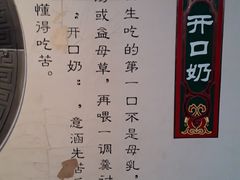 开口奶
生吃的第一口不是母乳，
或益母草，再喂一调羹
“开口奶”，意涵先苦
懂得吃苦。